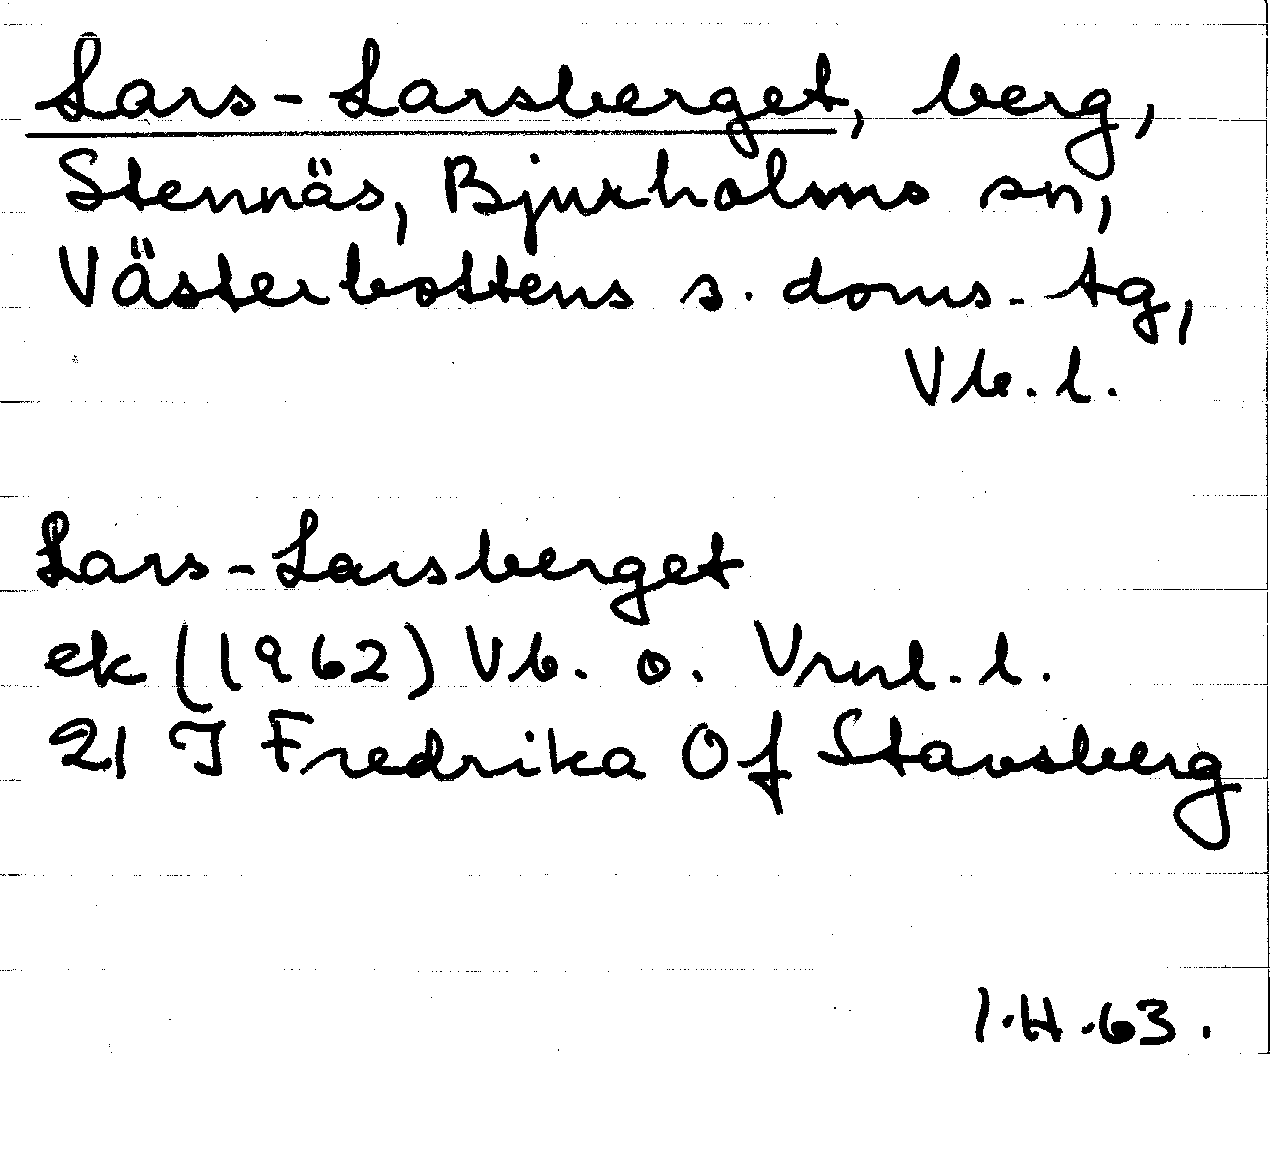 Lars-Larsberget, berg,
Stennäs, Bjurholms sn,
Västerbottens s. doms.tg,
Vb.l.
Lars-Larsberget
ek (1962) Vb. o. Vrml.l.
21 J Fredrika Of Stavsberg
I.H.63.